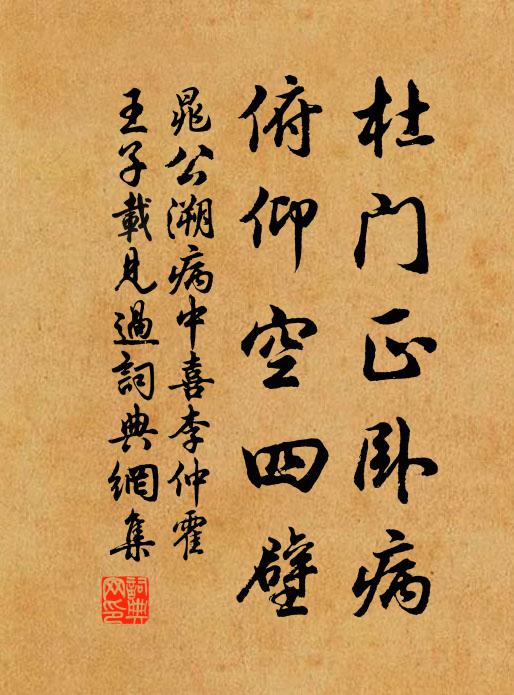 杜门正卧病
俯仰空四壁
晁公溯病中喜李仲霍
王子載见過詞典網集
詞典网印